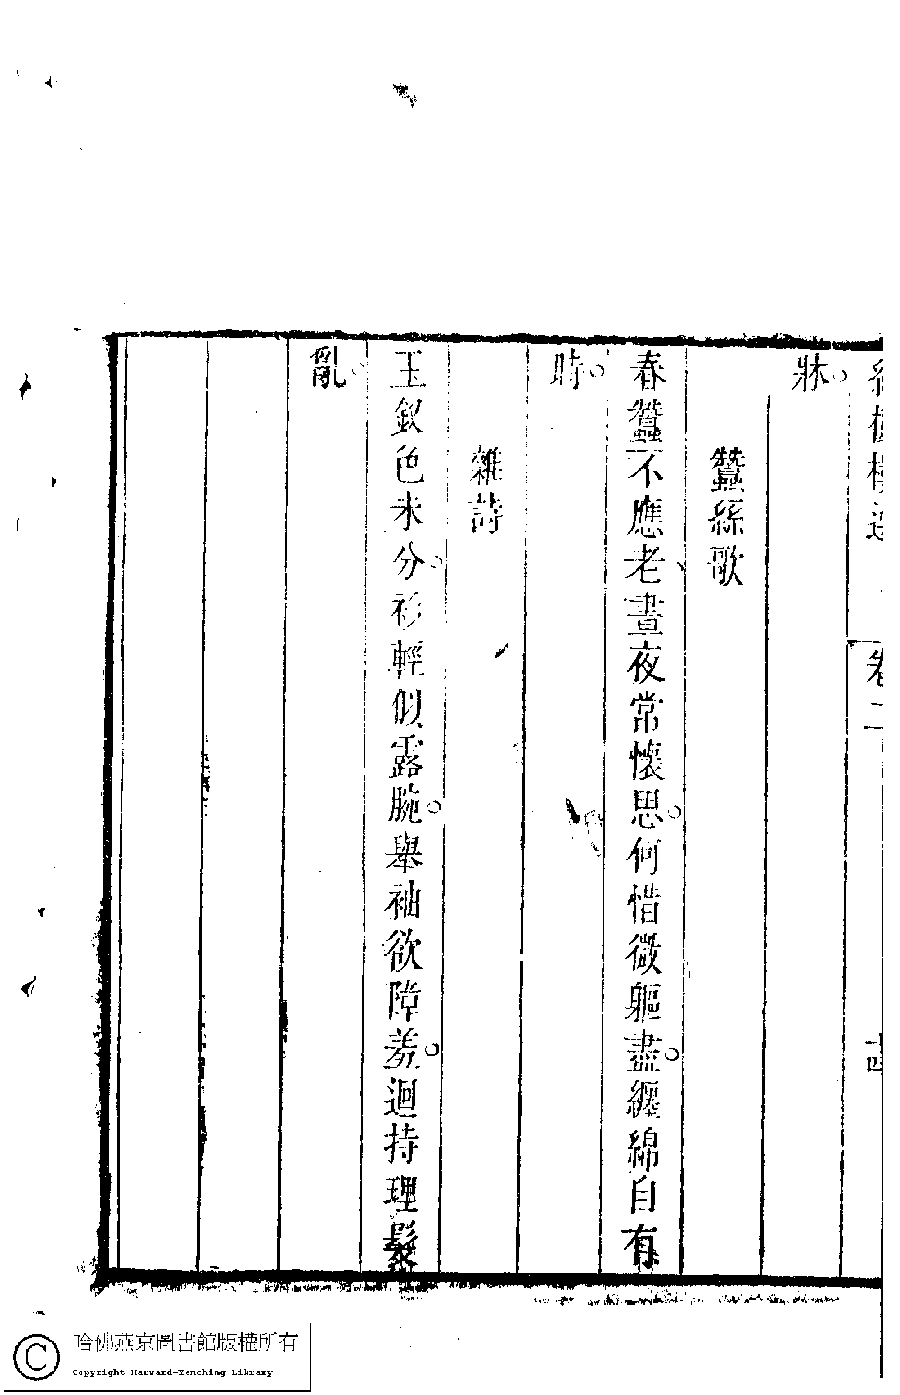 卷二
十四
牀
蠶絲歌
春蠶不應老晝夜常懷思何惜微軀盡纏綿自有
時
雜詩
玉釵色未分衫輕似露腕舉袖欲障羞迴持理髮
亂
哈佛燕京圖書館版權所有
Copyright Harvard-Yenching Library